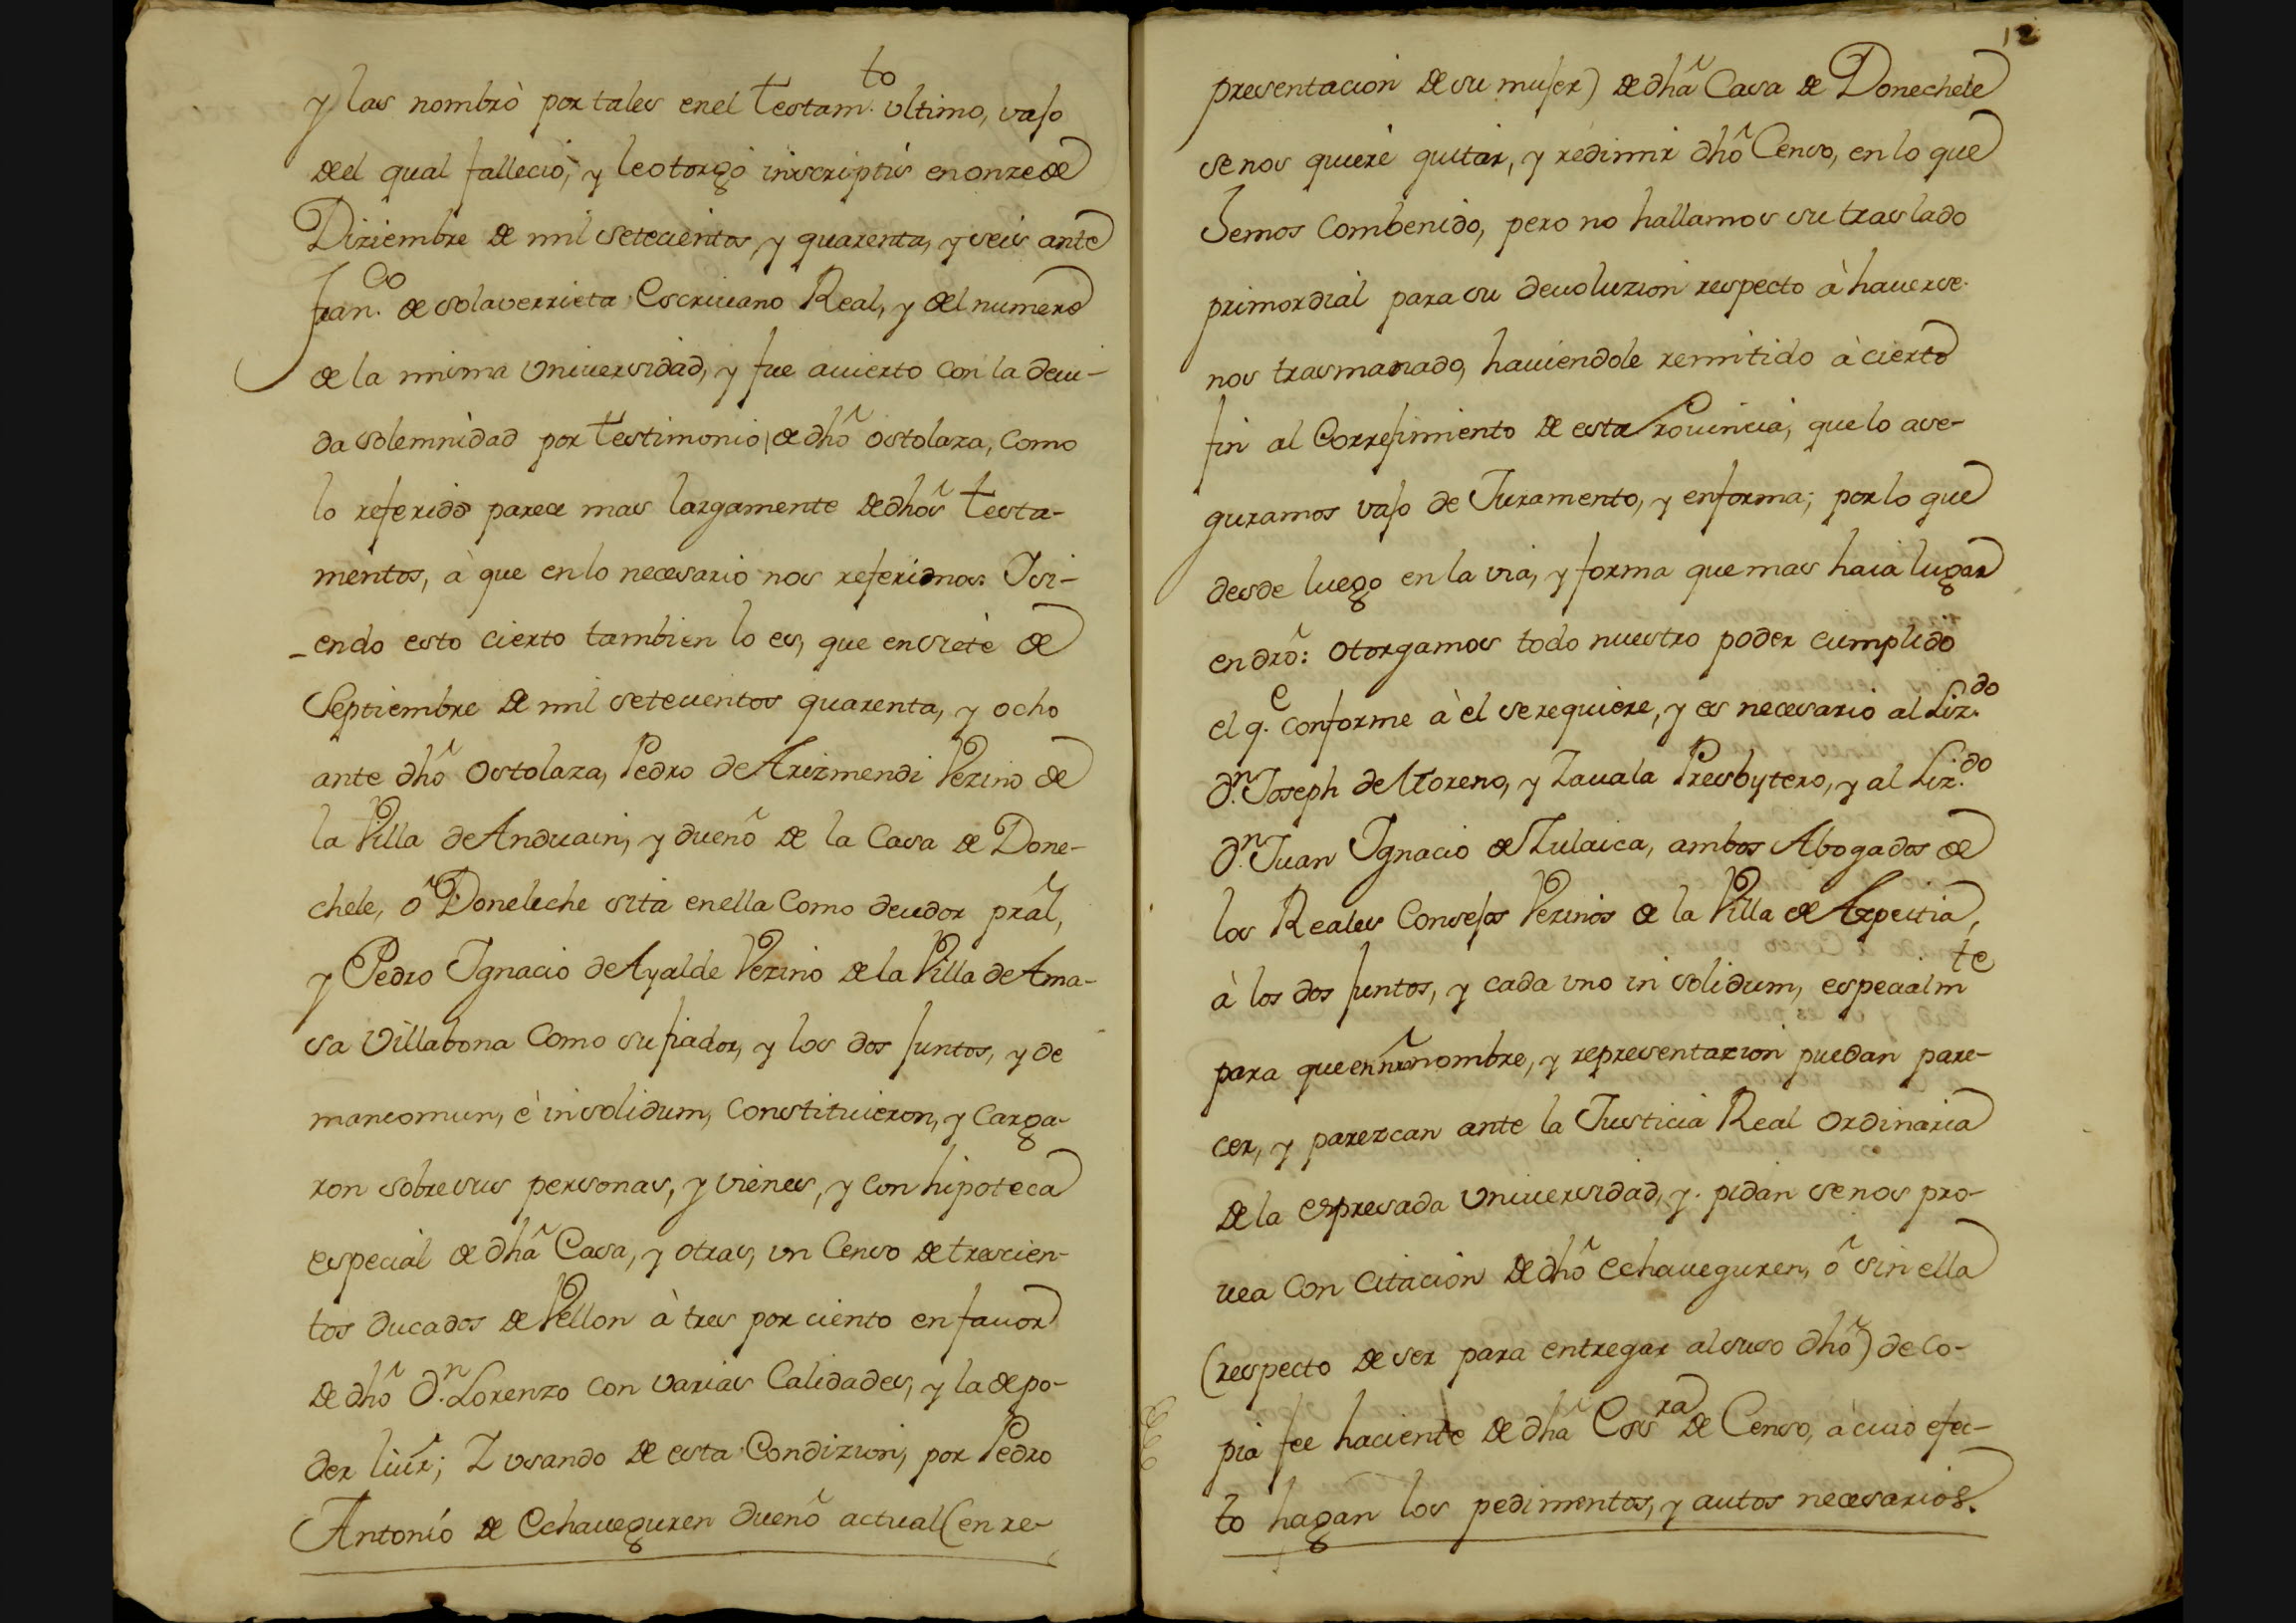 y las nombrò por tales enel testam.to vltimo, vajo
del qual falleciò, y leotorgò inscriptis enonze de
Diziembre de mil setecientos, y quarenta, y seis ante
Fran.co de Solaverrieta Escriuano Real, y del numero
de la misma Vniuersidad, y fue auierto con la deui-
da solemnidad por testimonio de dho Ostolaza, como
lo referido parece mas largamente de dhos testa-
mentos, à que enlo necesario nos referimos: Isi-
endo esto cierto tambien lo es, que ensiete de
Septiembre de mil setecientos quarenta, y ocho
ante dho Ostolaza, Pedro de Arizmendi Vezino de
la Villa de Anduain, y dueño de la Casa de Done-
chele, ô Doneleche sita enella como deudor pral,
y Pedro Ignacio de Ayalde Vezino de la Villa de Ama-
sa Villabona como su fiador, y los dos juntos, y de
mancomun, è insolidum, constituieron, y carga-
ron sobresus personas, y vienes, y con hipoteca
especial de dha Casa, y otras, vn Censo de trescien-
tos ducados de Vellon à tres por ciento en fauor
de dho d.n Lorenzo con varias Calidades, y la de po-
der luir; I vsando de esta Condizion, por Pedro
Antonio de Echaueguren dueño actual (en re-
12
presentacion de su mujer) de dha Casa de Donechele
senos quiere quitar, y redimir dho Censo, en lo que
hemos combenido, pero no hallamos su traslado
primordial para su devoluzion respecto à hauerse-
nos trasmanado, hauiendole remitido à cierto
fin al Correjimiento de esta Prouincia, que lo ase-
guramos vajo de Juramento, y enforma; por lo que
desde luego en la via, y forma que mas haia lugar
en dro: otorgamos todo nuestro poder cumplido
el q.e conforme à èl se requiere, y es necesario al Liz.do
d.n Joseph de Moreno, y Zauala Presbytero, y al Liz.do
d.n Juan Ignacio de Zulaica, ambos Abogados de
los Reales Consejos Vezinos de la Villa de Azpeitia,
à los dos juntos, y cada vno in solidum, especialmte
para que en nro nombre, y representazion puedan pare-
cer, y parezcan ante la Justicia Real ordinaria
de la expresada Vniuersidad, y pidan senos pro-
uea con citacion de dho Echaueguren, ô sin ella
(respecto de ser para entregar al suso dho) de co-
pia fee haciente de dha Essra de Censo, à cuio efec-
to hagan los pedimentos, y autos necesarios.